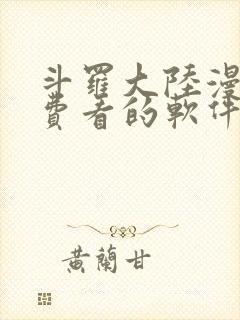 斗羅大陸漫
費看的軟件
黃蘭甘